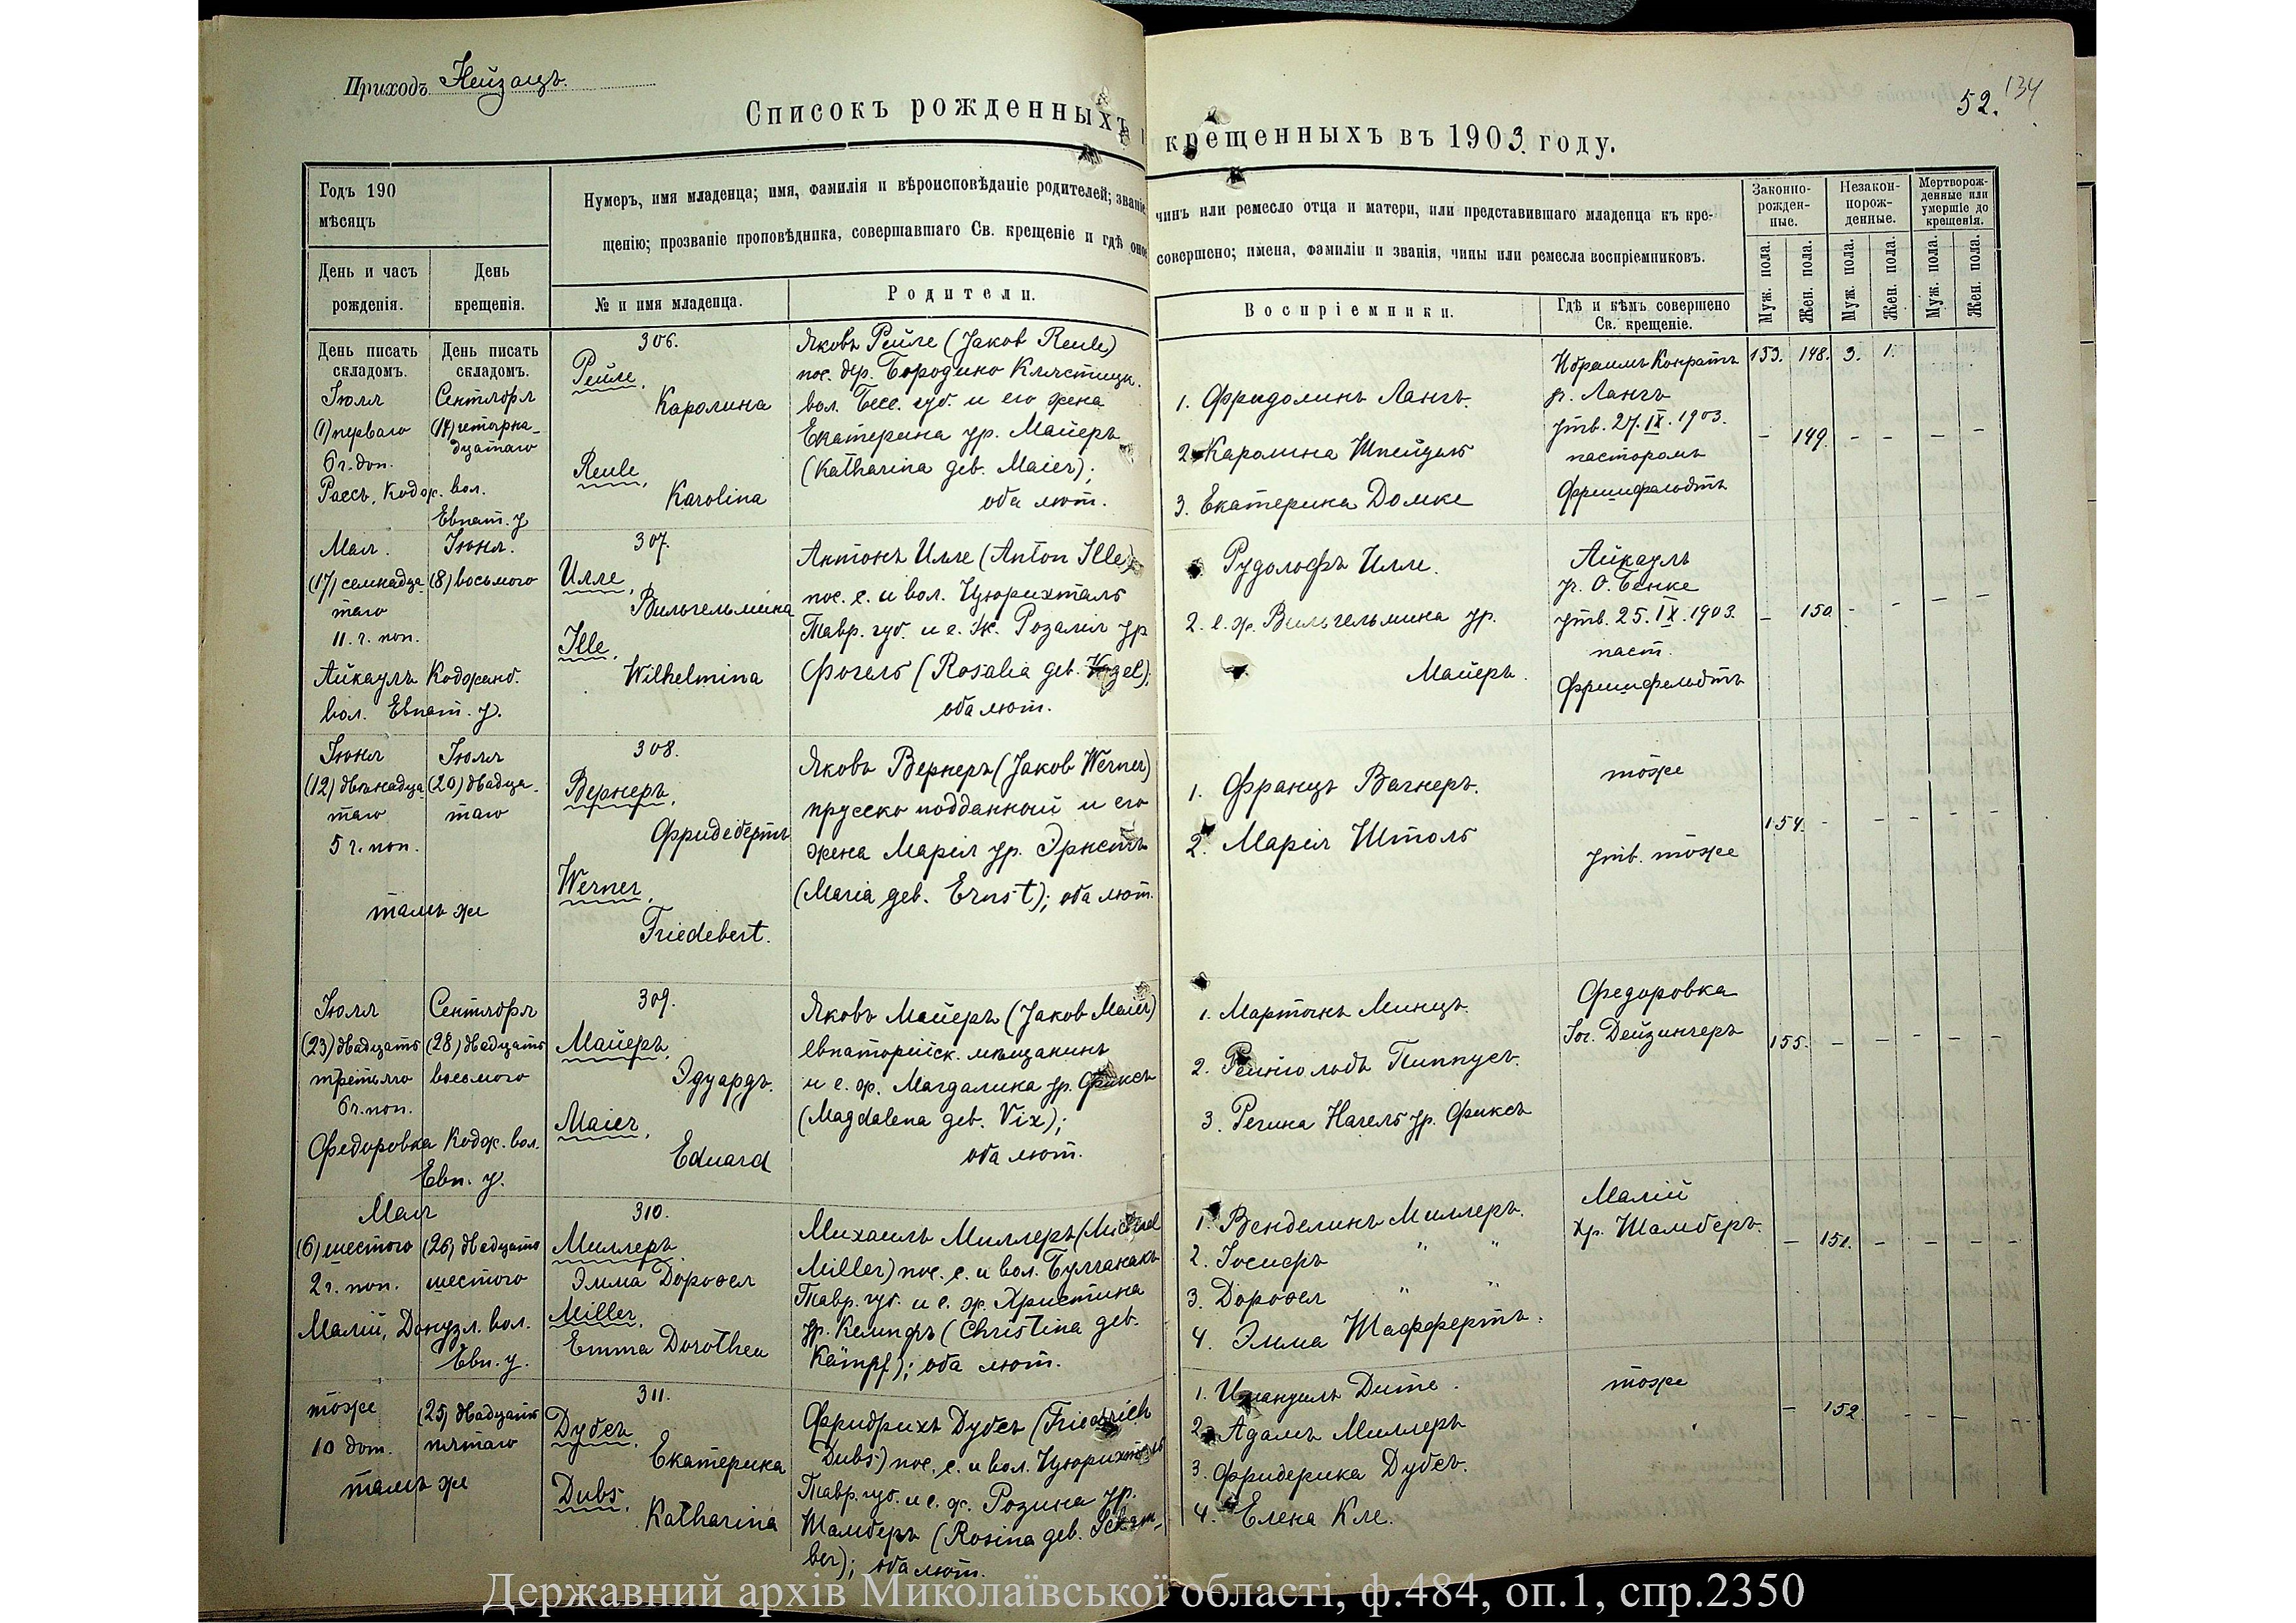 Приходъ Нейзацъ.
52. 134
Списокъ рожденныхъ и крещенныхъ въ 1903. году.
Годъ 190
мѣсяцъ
День и часъ рожденія.
День крещенія.
Нумеръ, имя младенца; имя, фамилія и вѣроисповѣданіе родителей; званіе
щенію; прозваніе проповѣдника, совершавшаго Св. крещеніе и гдѣ оное
чинъ или ремесло отца и матери, или представившаго младенца къ кре-
совершено; имена, фамиліи и званія, чины или ремесла воспріемниковъ.
№ и имя младенца.
Родители.
Воспріемники.
Гдѣ и кѣмъ совершено
Св. крещеніе.
Законно-
рожден-
ные.
Незакон-
норож-
денные.
Мертворож-
денные или
умершіе до
крещенія.
Муж. пола.
Жен. пола.
Муж. пола.
Жен. пола.
Муж. пола.
Жен. пола.
День писать
складомъ.
День писать
складомъ.
Іюля
(1) перваго
6 ч. доп.
Раесъ, Кодож. вол.
Евпат. у
Сентября
(14) четырна-
дцатаго
306.
Рейле,
Каролина
Reule,
Karolina
Яковъ Рейле (Jakob Reule)
пос. дер. Бородино Клястицк.
вол. Бесс. губ. и его жена
Екатерина ур. Майеръ
(Katharina geb. Maier);
оба лют.
1. Фридолинъ Лангъ.
2. Каролина Шпейдель
3. Екатерина Домке
Ибраимъ Конратъ
Лангъ
утв. 27. IX. 1903.
пасторомъ
153. 148. 3. 1.
– 149. – – – –
Мая.
(17) семнадца
таго
11. ч. поп.
Айкаулъ Коджанб.
вол. Евпат. у.
Іюня.
(8) восьмого
307.
Илле,
Вильгельмина
Ille,
Wilhelmina
Антонъ Илле (Anton Ille),
пос. с. и вол. Цюрихталь
Тавр. губ. и е. ж. Розалія ур
Фогель (Rosalia geb. Vogel);
оба лют.
1. Рудольфъ Илле.
2. е. ж. Вильгельмина ур.
Майеръ.
Айкаулъ
уч. О. Бенке
утв. 25. IX. 1903.
паст.
– 150. – – – –
Іюня
(12) двѣнадца
таго
5 ч. поп.
тамъ же
Іюля
(20) двадца-
таго
308.
Вернеръ,
Фридебертъ
Werner,
Friedebert.
Яковъ Вернеръ (Jakob Werner)
прусско подданный и его
жена Марія ур. Эрнстъ
(Maria geb. Ernst); оба лют.
1. Францъ Вагнеръ.
2. Марія Штоль
тоже
утв. тоже
154. – – – – –
Іюля
(23) двадцать
третьяго
6 ч. поп.
Федоровка Кодж. вол.
Евп. у.
Сентября
(28) двадцать
восьмого
309.
Майеръ,
Эдуардъ.
Maier,
Eduard
Яковъ Майеръ (Jakob Maier)
евпаторійск. мѣщанинъ
и е. ж. Магдалина ур. Фиксъ
(Magdalena geb. Vix);
оба лют.
1. Мартинъ Минцъ.
2. Рейнгольдъ Пиппусъ.
3. Регина Нагель ур. Фиксъ
Федоровка
Іог. Дейзингеръ
155. – – – – –
Мая
(6) шестого
2 ч. поп.
Малій, Донузл. вол.
Евп. у.
(26) двадцать
шестого
310.
Миллеръ,
Эмма Доровея
Miller,
Emma Dorothea
Михаилъ Миллеръ (Michael
Miller) пос. с. и вол. Булганакъ
Тавр. губ. и е. ж. Христина
ур. Кемпфъ (Christina geb.
Kämpf); оба лют.
1. Венделинъ Миллеръ.
2. Іосифъ " "
3. Доровея " "
4. Эмма Шаффертъ.
Малій
Хр. Шамберъ.
– 151. – – – –
тоже
10 доп.
тамъ же
(25) двадцать
пятаго
311.
Дубсъ,
Екатерина
Dubs,
Katharina
Фридрихъ Дубсъ (Friedrich
Dubs) пос. с. и вол. Цюрихталь
Тавр. губ. и е. ж. Розина ур.
Шамберъ (Rosina geb. Scham-
ber); оба лют.
1. Имануилъ Дите.
2. Адамъ Миллеръ
3. Фридерика Дубсъ.
4. Елена Кле.
тоже
– 152. – – – –
Державний архів Миколаївської області, ф.484, оп.1, спр.2350